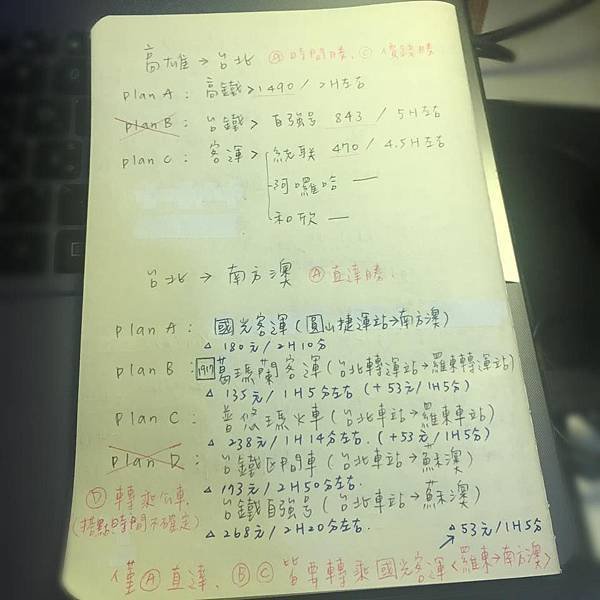 高雄→台北 Ⓐ時間勝、Ⓒ價錢勝
Plan A: 高鐵>1490/2H左右
Plan B: 台鐵>自強号 843/5H左右
Plan C: 客運>統联 470/4.5H左右
阿囉哈 —
和欣 —
台北→南方澳 Ⓐ直達勝.
Plan A: 國光客運(圓山捷運站→南方澳)
△ 180元/2H10分
Plan B: 1917葛瑪蘭客運(台北轉運站→羅東轉運站)
△ 135元/1H5分左右(+53元/1H5分)
Plan C: 普悠瑪火車(台北車站→羅東車站)
△ 238元/1H14分左右.(+53元/1H5分)
Plan D: 台鐵区間車(台北車站→蘇澳)
△ 173元/2H50分左右.
台鐵自強号(台北車站→蘇澳)
△ 268元/2H20分左右.
Ⓓ轉乘公車
(搭點時間不確定)
△53元/1H5分
僅Ⓐ直達、ⒷⒸ皆要轉乘國光客運<羅東→南方澳>